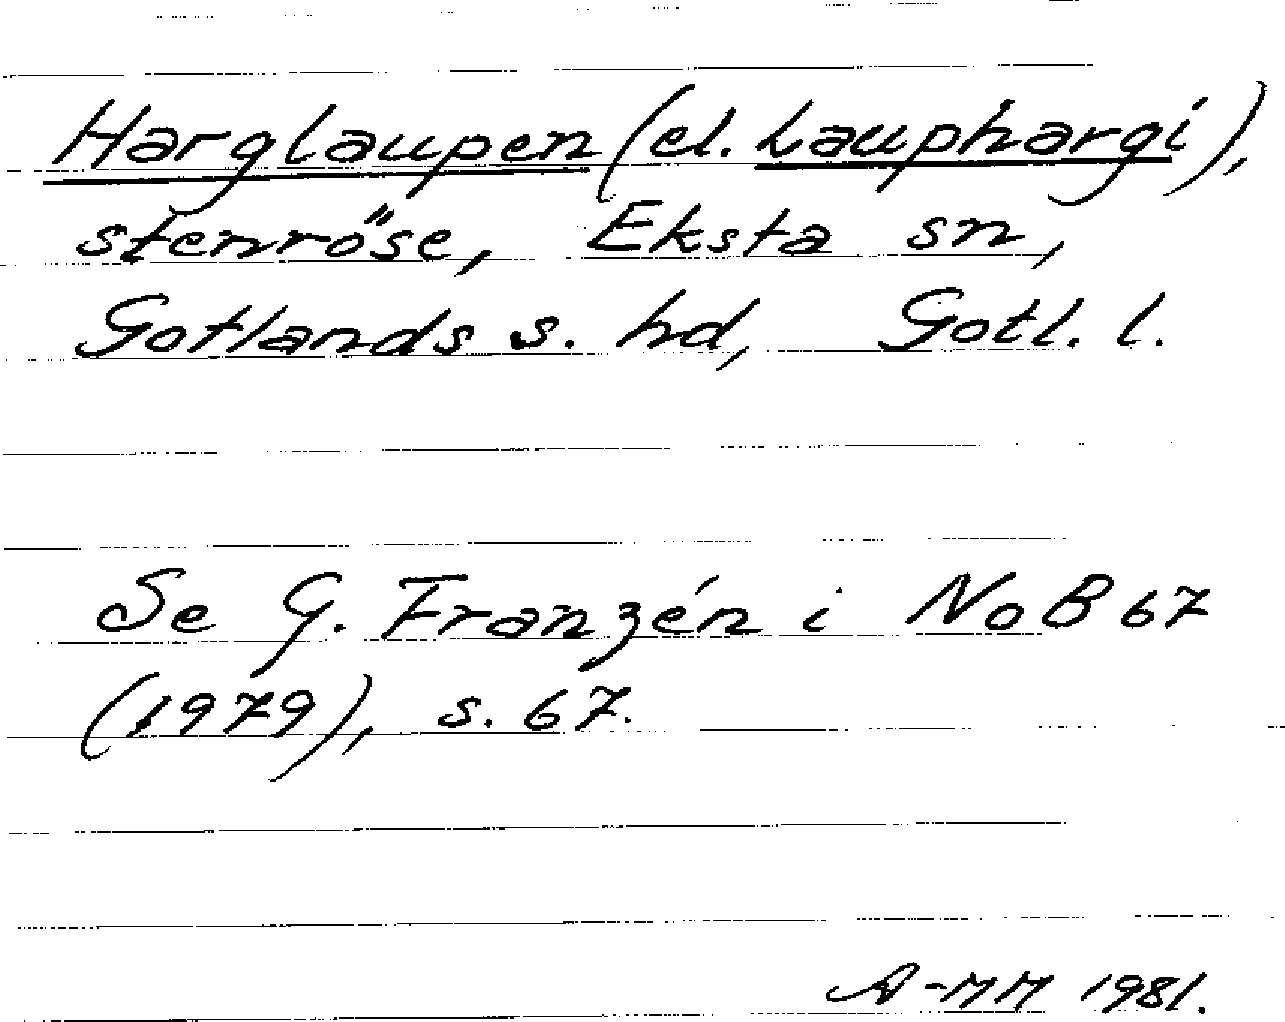 Harglaupen (el. Lauphargi),
stenröse, Eksta sn,
Gotlands s. hd, Gotl. l.
Se G. Franzén i NoB 67
(1979), s. 67.
A-MM 1981.